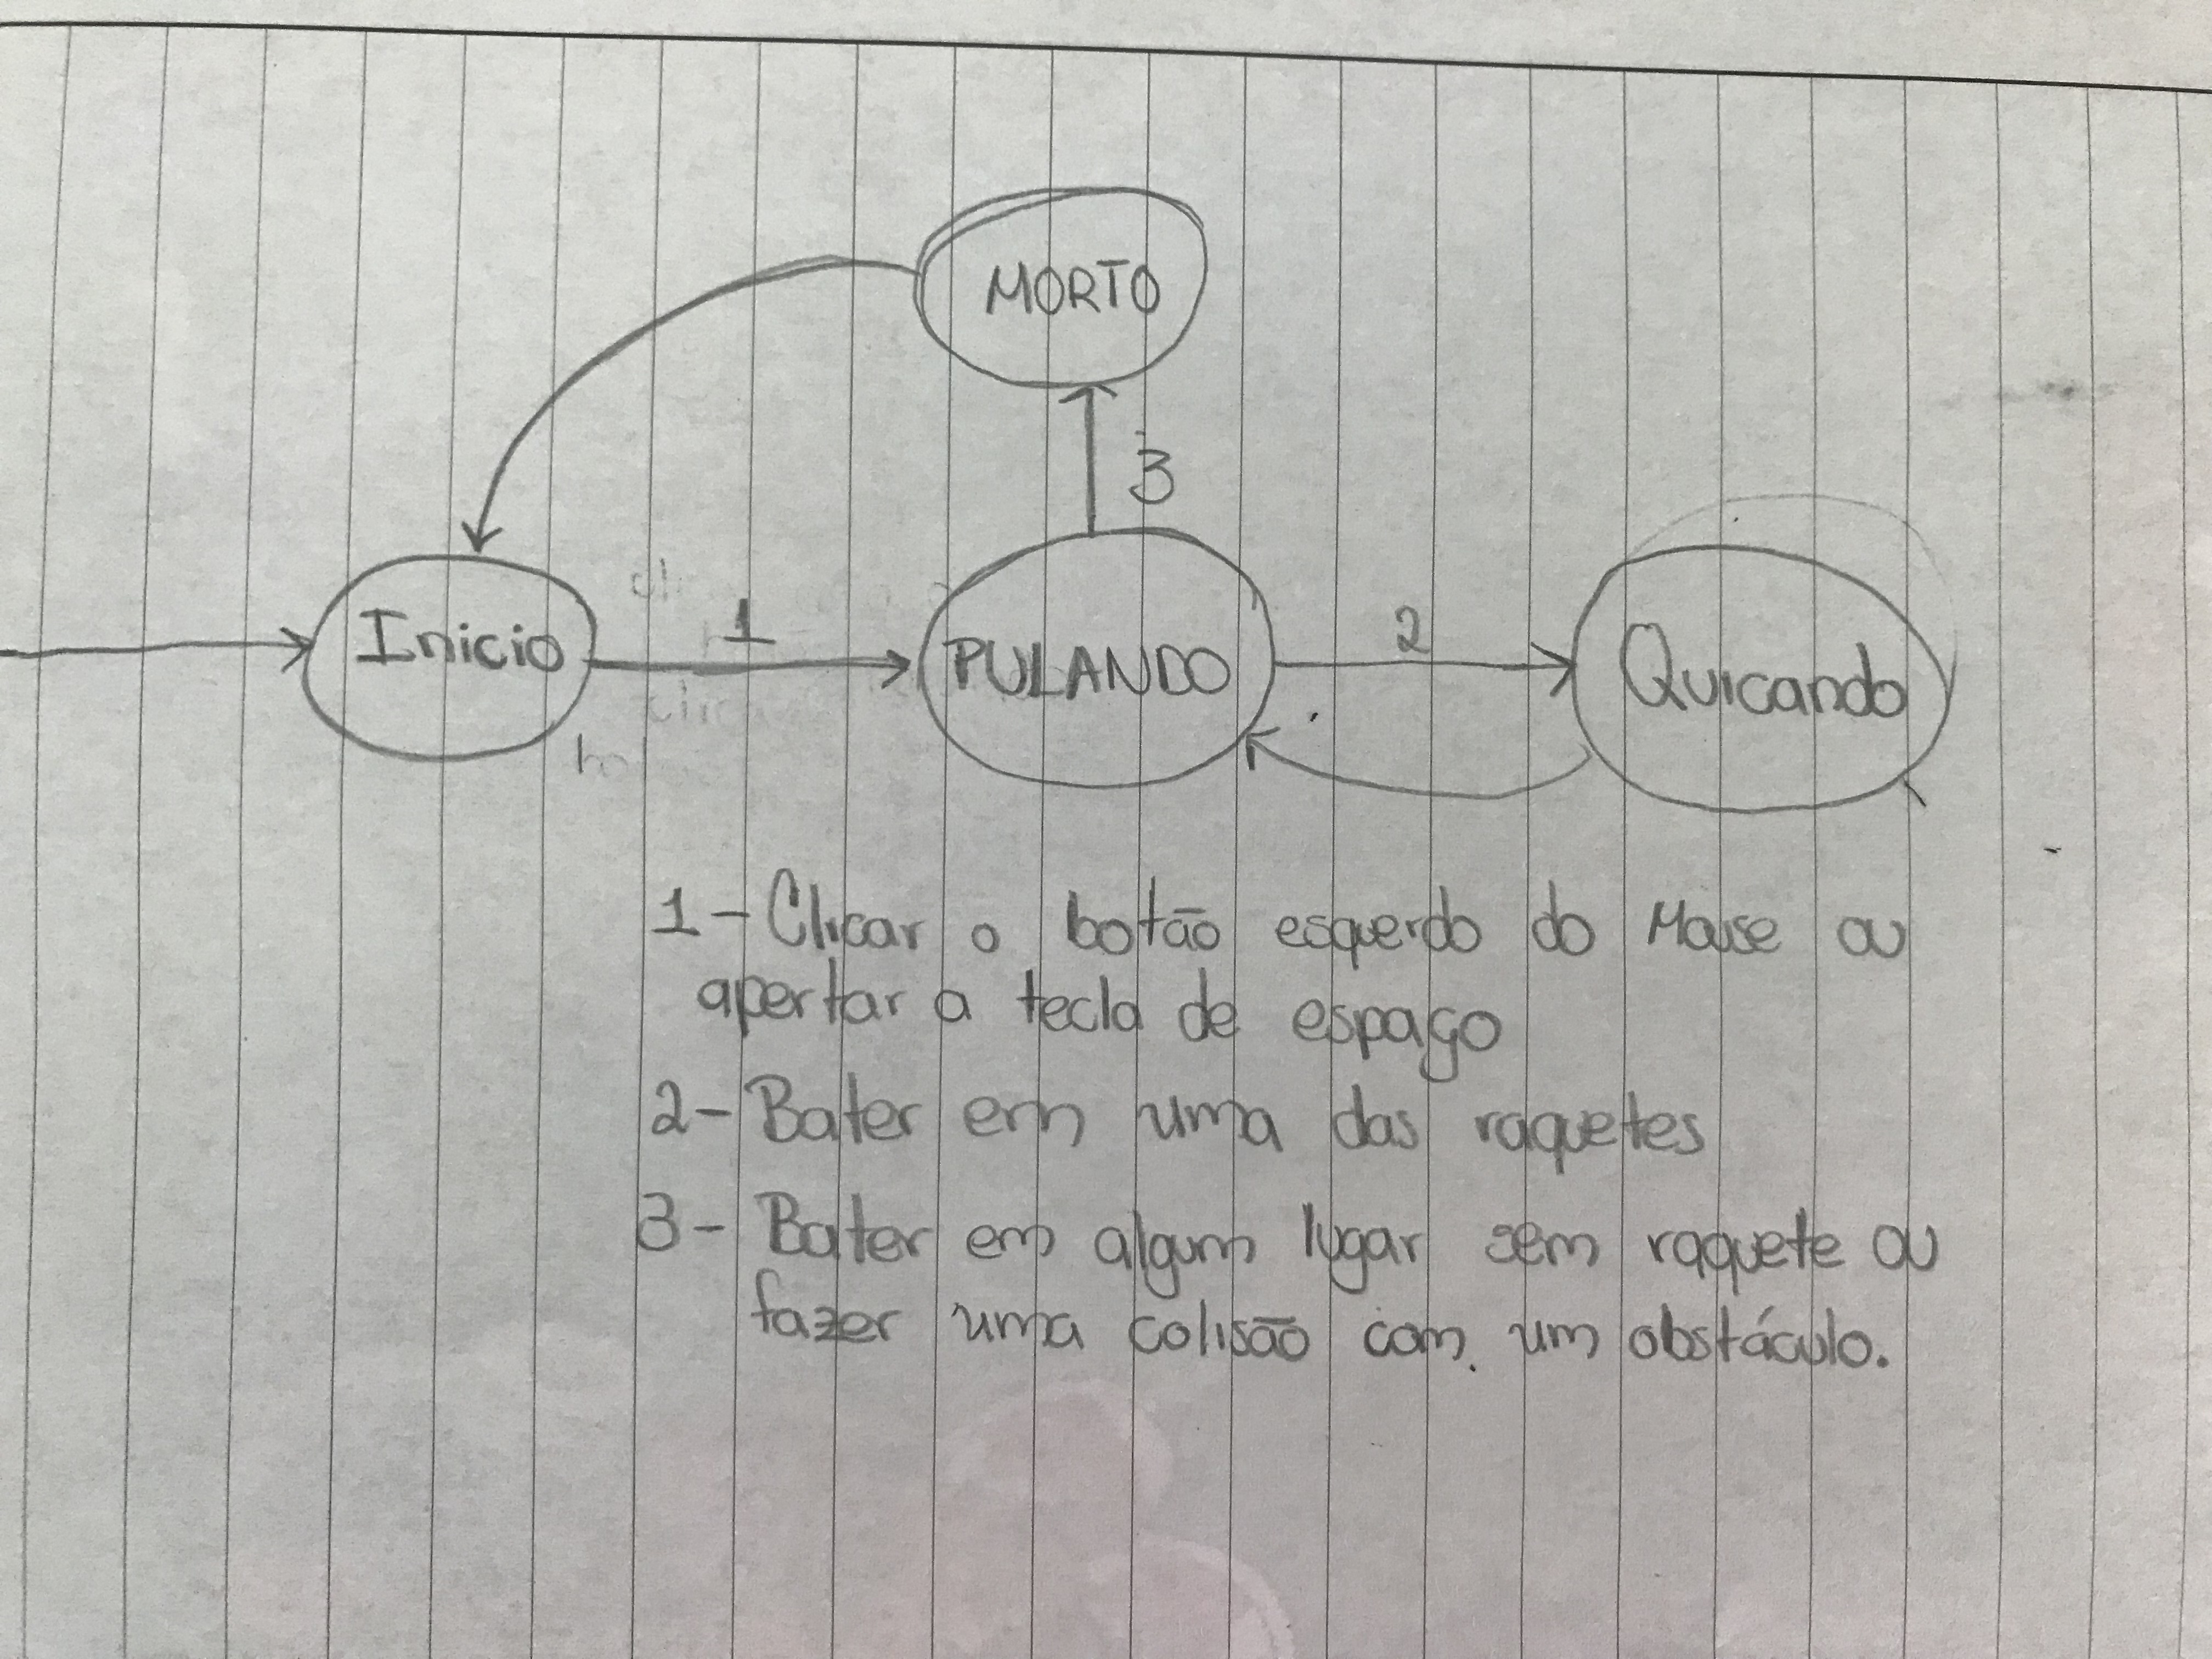 MORTO
3
Inicio
1
PULANDO
2
Quicando
1 - Clicar o botão esquerdo do Mouse ou
apertar a tecla de espaço
2 - Bater em uma das raquetes
3 - Bater em algum lugar sem raquete ou
fazer uma colisão com um obstáculo.